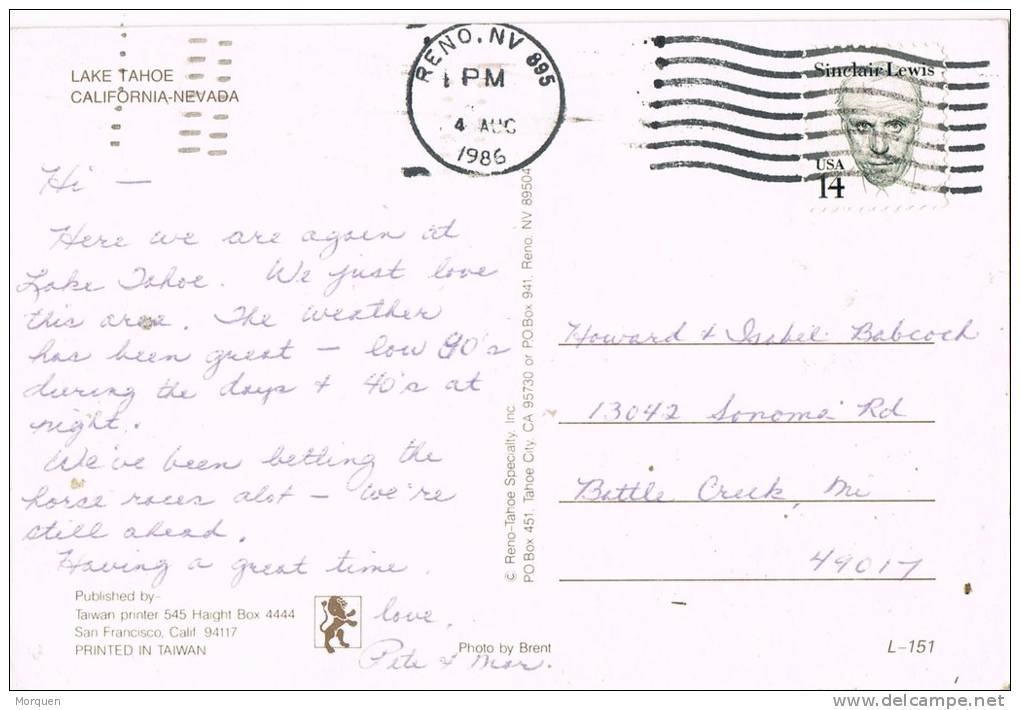 LAKE TAHOE
CALIFORNIA-NEVADA
RENO, NV 895
PM
4 AUG
1986
Sinclair Lewis
USA
14
Hi —
Here we are again at
Lake Tahoe. We just love
this area. The weather
has been great — low 90's
during the days + 40's at
night.
We've been betting the
horse races alot — we're
still ahead.
Having a great time.
love,
Pete + Mar.
© Reno-Tahoe Specialty, Inc.
PO Box 451, Tahoe City, CA 95730 or PO Box 941, Reno, NV 89504
Howard + Isabel Babcock
13042 Sonoma Rd
Battle Creek, Mi
49017
Published by-
Taiwan printer 545 Haight Box 4444
San Francisco, Calif. 94117
PRINTED IN TAIWAN
Photo by Brent
L-151
Morquen
delcampe.net